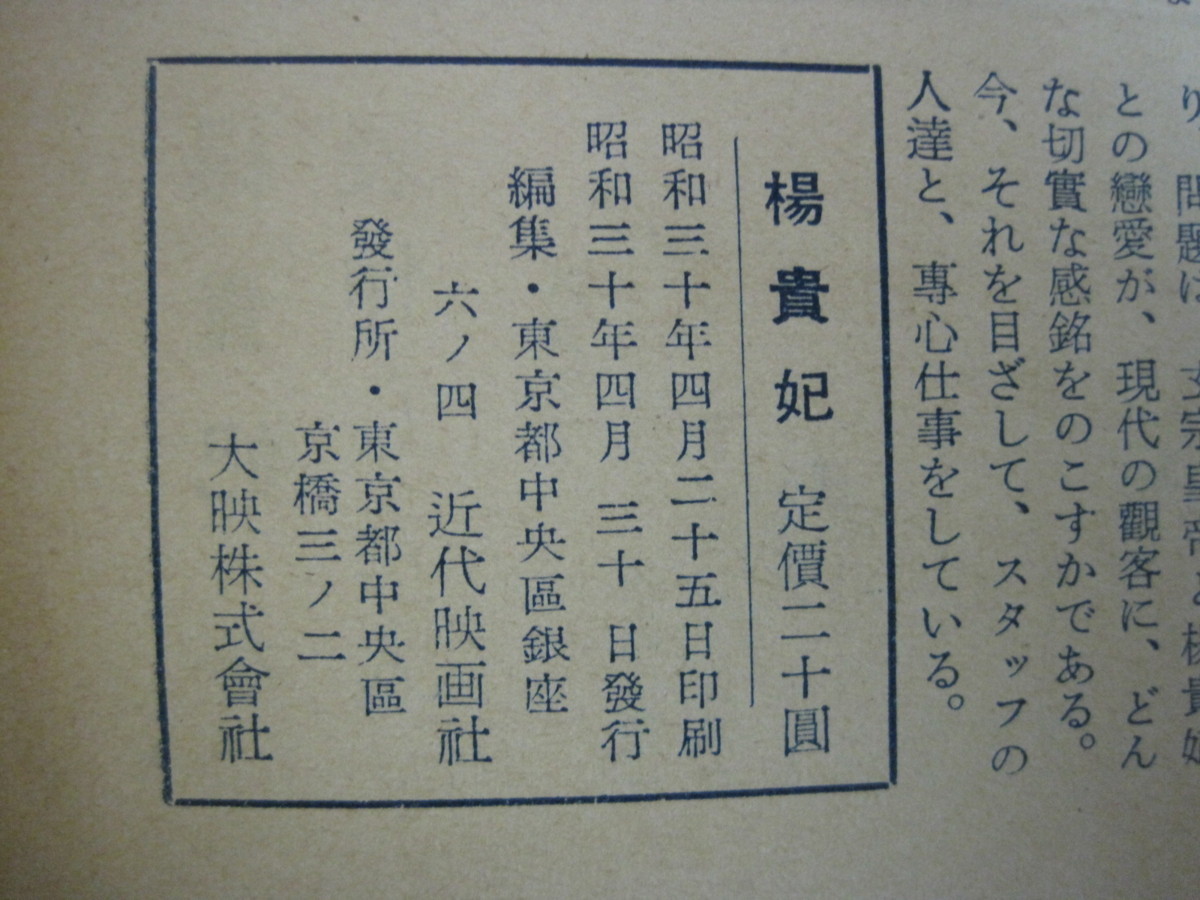 問題は、玄宗皇帝と楊貴
との戀愛が、現代の觀客に、どん
な切實な感銘をのこすかである。
今、それを目ざして、スタッフの
人達と、專心仕事をしている。
楊貴妃 定價二十圓
昭和三十年四月二十五日印刷
昭和三十年四月三十日發行
編集・東京都中央區銀座
六ノ四 近代映画社
發行所・東京都中央區
京橋三ノ二
大映株式會社